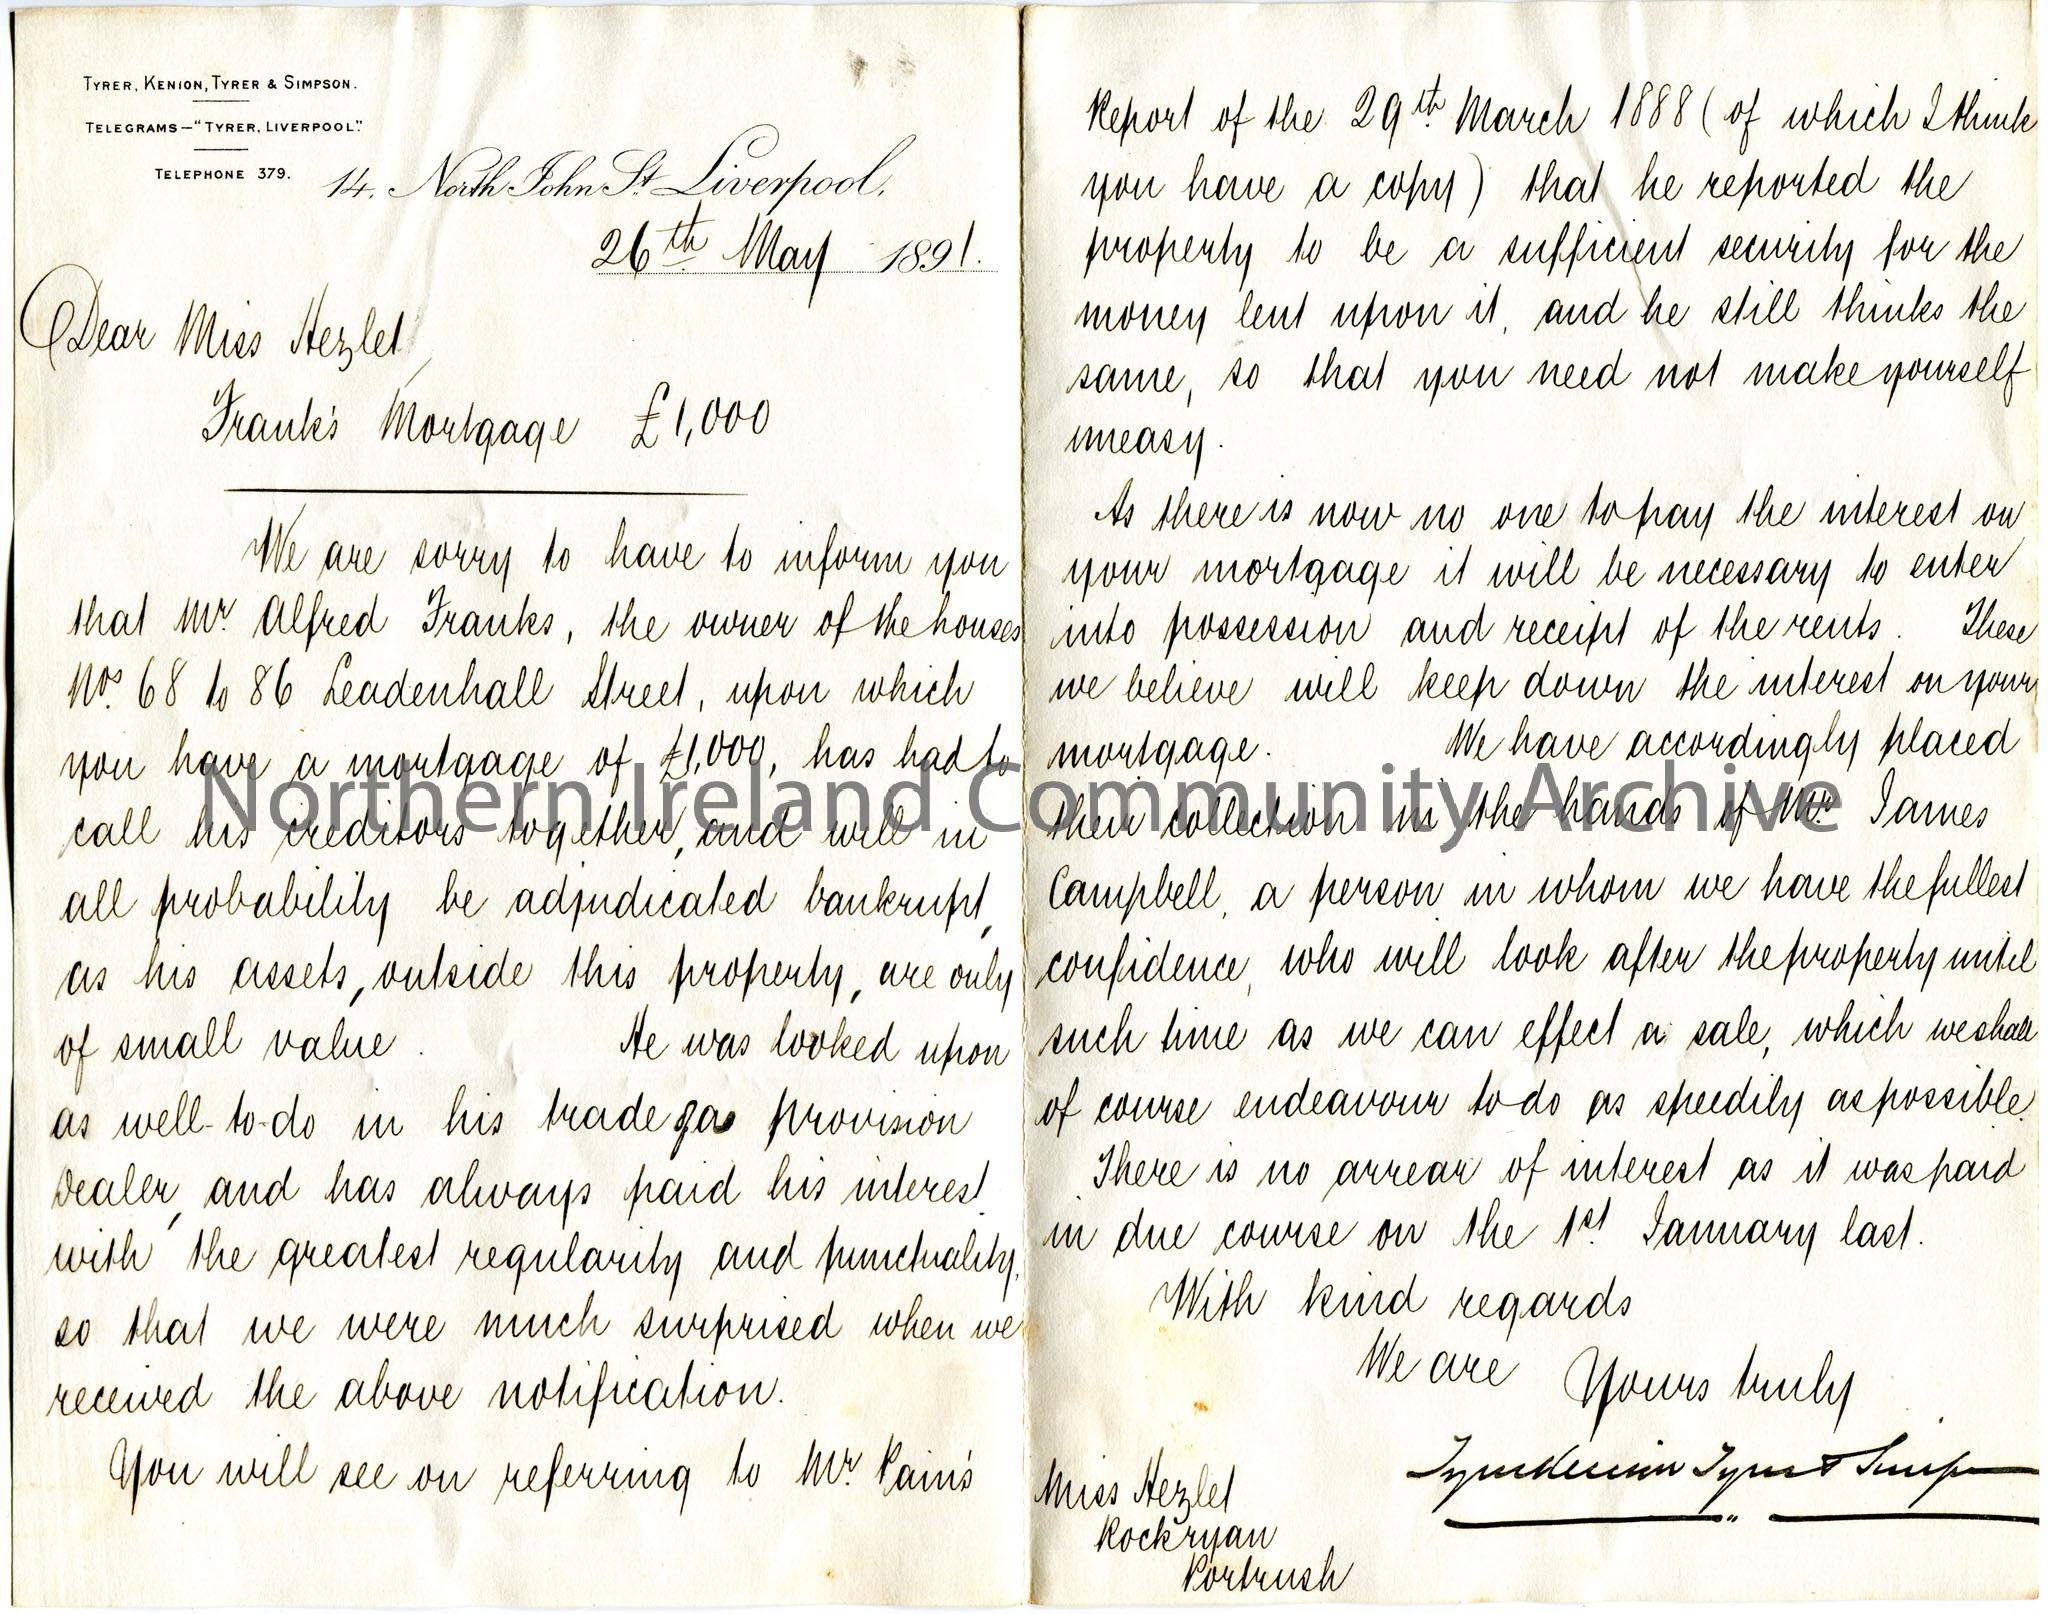 TYRER, KENION, TYRER & SIMPSON.
TELEGRAMS—"TYRER, LIVERPOOL."
TELEPHONE 379.
14, North John St. Liverpool,
26th May 1891.
Dear Miss Hezlet
Frank's Mortgage £1,000
We are sorry to have to inform you
that Mr. Alfred Franks, the owner of the houses
Nos. 68 to 86 Leadenhall Street, upon which
you have a mortgage of £1,000, has had to
call his creditors together, and will in
all probability be adjudicated bankrupt,
as his assets, outside this property, are only
of small value. He was looked upon
as well-to-do in his trade as provision
dealer, and has always paid his interest
with the greatest regularity and punctuality,
so that we were much surprised when we
received the above notification.
You will see on referring to Mr. Pain's
Report of the 29th March 1888 (of which I think
you have a copy) that he reported the
property to be a sufficient security for the
money lent upon it, and he still thinks the
same, so that you need not make yourself
uneasy.
As there is now no one to pay the interest on
your mortgage it will be necessary to enter
into possession and receipt of the rents. These
we believe will keep down the interest on your
mortgage. We have accordingly placed
their collection in the hands of Mr. James
Campbell, a person in whom we have the fullest
confidence, who will look after the property until
such time as we can effect a sale, which we shall
of course endeavour to do as speedily as possible.
There is no arrear of interest as it was paid
in due course on the 1st. January last.
With kind regards
We are Yours truly
Tyrer Kenion Tyrer & Simpson
Miss Hezlet
Rockryan
Portrush
Northern Ireland Community Archive